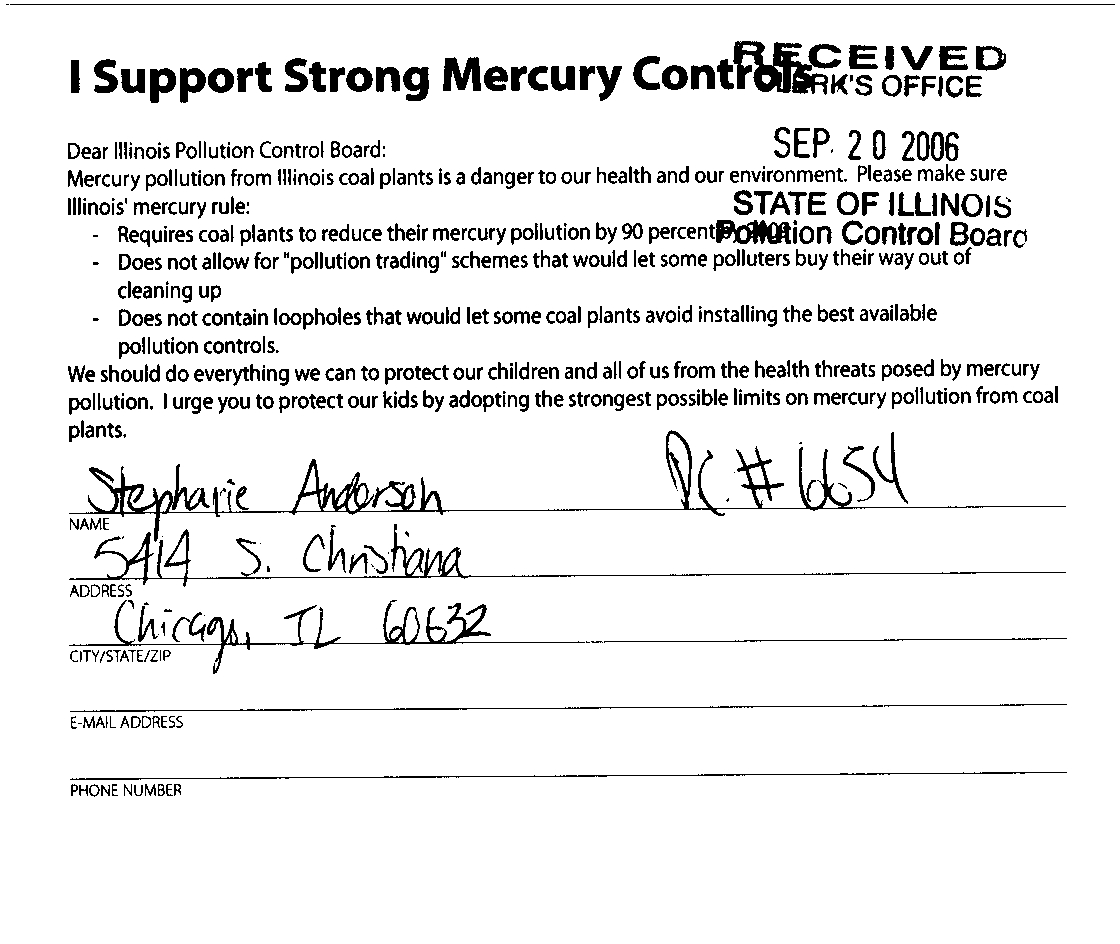 I Support Strong Mercury Controls
RECEIVED
CLERK'S OFFICE
SEP. 20 2006
STATE OF ILLINOIS
Pollution Control Board
Dear Illinois Pollution Control Board:
Mercury pollution from Illinois coal plants is a danger to our health and our environment. Please make sure
Illinois' mercury rule:
- Requires coal plants to reduce their mercury pollution by 90 percent
- Does not allow for "pollution trading" schemes that would let some polluters buy their way out of
cleaning up
- Does not contain loopholes that would let some coal plants avoid installing the best available
pollution controls.
We should do everything we can to protect our children and all of us from the health threats posed by mercury
pollution. I urge you to protect our kids by adopting the strongest possible limits on mercury pollution from coal
plants.
Stephanie Anderson
PC # 6654
NAME
5414 S. Christiana
ADDRESS
Chicago, IL 60632
CITY/STATE/ZIP
E-MAIL ADDRESS
PHONE NUMBER